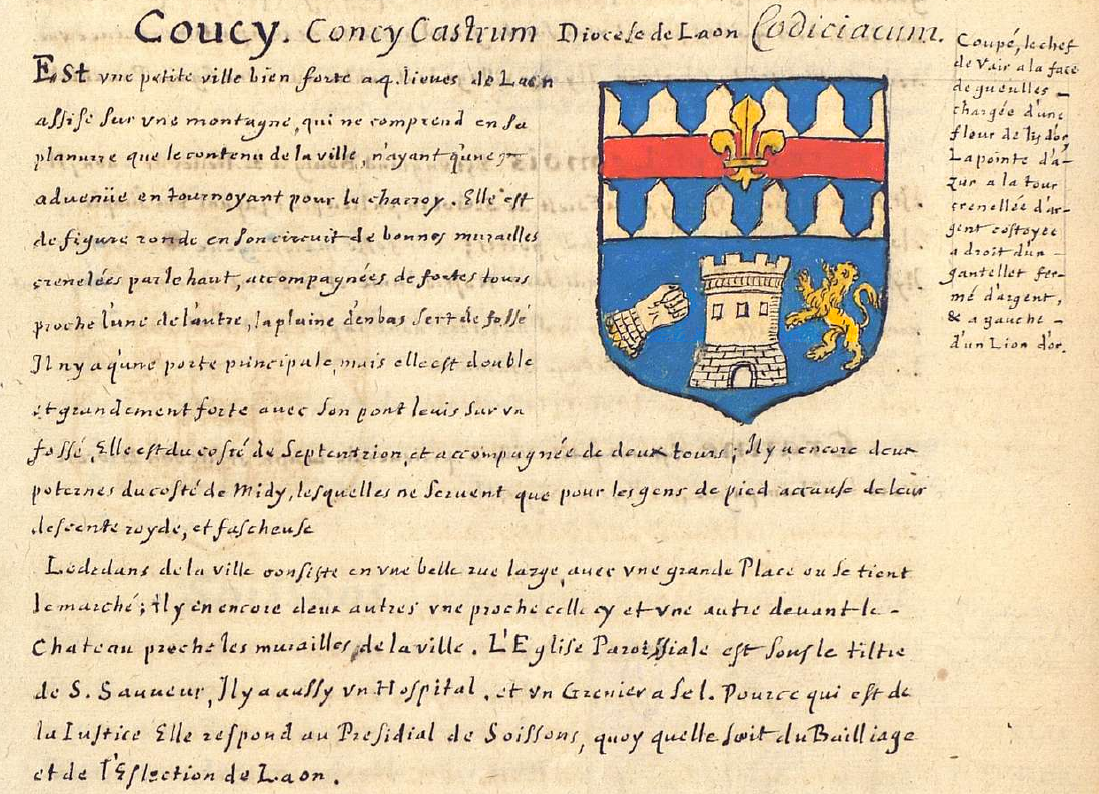 Coucy. Concy Castrum Diocese de Laon Codiciacum.
Est vne petite ville bien forte a 4. lieues de Laon
assise sur vne montagne, qui ne comprend en sa
planurre que le contenu de la ville, n'ayant q'une
advenüe en tournoyant pour le charroy. Elle est
de figure ronde en son circuit de bonnes murailles
crenelées par le haut, accompagnées de fortes tours
proche l'une de l'autre, la plaine d'enbas sert de fossé
Il n'y a q'une porte principale, mais elle est double
et grandement forte avec son pont levis sur vn
fossé, Elle est du costé de Septentrion, et accompagnée de deux tours; Il y a encore deux
poternes du costé de Midy, lesquelles ne servent que pour les gens de pied accause de leur
descente royde, et fascheuse
Le dedans de la ville consiste en vne belle rue large, avec vne grande Place ou se tient
le marché; il y en encore deux autres vne proche celle cy et vne autre devant le -
Chateau proche les murailles de la ville. L'Eglise Paroissiale est sous le tiltre
de S. Sauveur, Il y a aussy vn Hospital, et vn Grenier a sel. Pource qui est de
la Iustice Elle respond au Presidial de Soissons, quoy quelle soit du Bailliage
et de l'Eslection de Laon.
Coupé, le chef
de Vair a la face
de gueulles -
chargée d'une
fleur de lys d'or,
La pointe d'a-
zur a la tour
crenellée d'ar-
gent costoyée
a droit d'un -
gantellet fer-
mé d'argent,
& a gauche -
d'un Lion d'or.